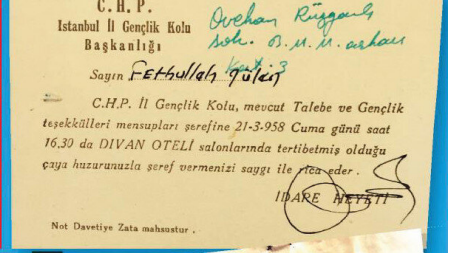 C. H. P.
Istanbul İl Gençlik Kolu
Başkanlığı
Sayın Fethullah Gülen
C.H.P. İl Gençlik Kolu, mevcut Talebe ve Gençlik
teşekkülleri mensupları şerefine 21-3-958 Cuma günü saat
16,30 da DIVAN OTELİ salonlarında tertibetmiş olduğu
çaya huzurunuzla şeref vermenizi saygı ile rica eder .
İDARE HEYETİ
Not Davetiye Zata mahsustur .